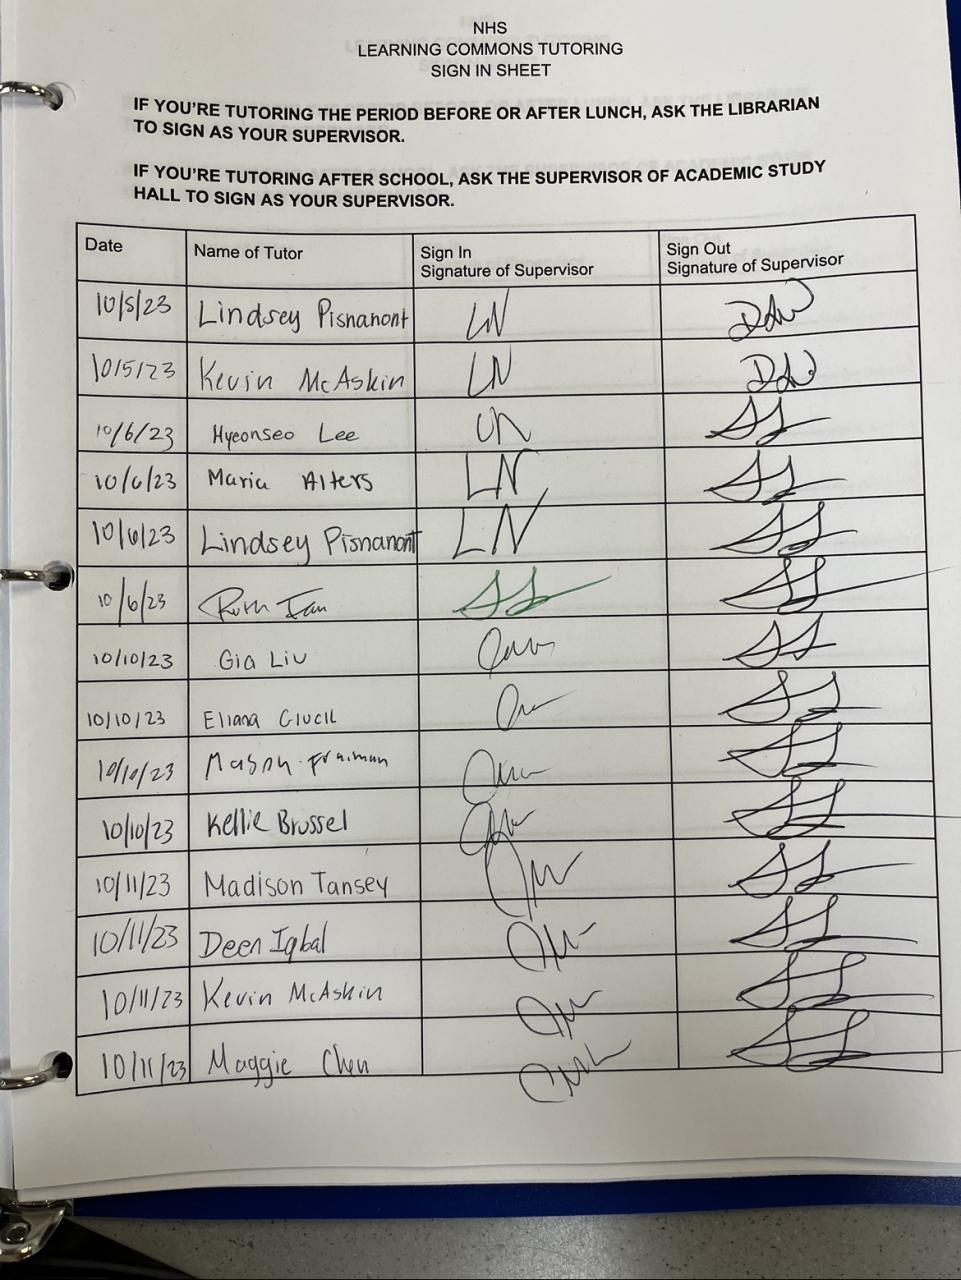 NHS
LEARNING COMMONS TUTORING
SIGN IN SHEET
IF YOU'RE TUTORING THE PERIOD BEFORE OR AFTER LUNCH, ASK THE LIBRARIAN
TO SIGN AS YOUR SUPERVISOR.
IF YOU'RE TUTORING AFTER SCHOOL, ASK THE SUPERVISOR OF ACADEMIC STUDY
HALL TO SIGN AS YOUR SUPERVISOR.
Date Name of Tutor Sign In Signature of Supervisor Sign Out Signature of Supervisor
10/5/23 Lindsey Pisnanont LN
10/5/23 Kevin McAskin LN
10/6/23 Hyeonseo Lee LN
10/6/23 Maria Alters LN
10/6/23 Lindsey Pisnanont LN
10/6/23
10/10/23 Gia Liu
10/10/23 Eliana Glucil
10/10/23 Mason Fraiman
10/10/23 Kellie Brussel
10/11/23 Madison Tansey
10/11/23 Deen Iqbal
10/11/23 Kevin McAskin
10/11/23 Maggie Chen